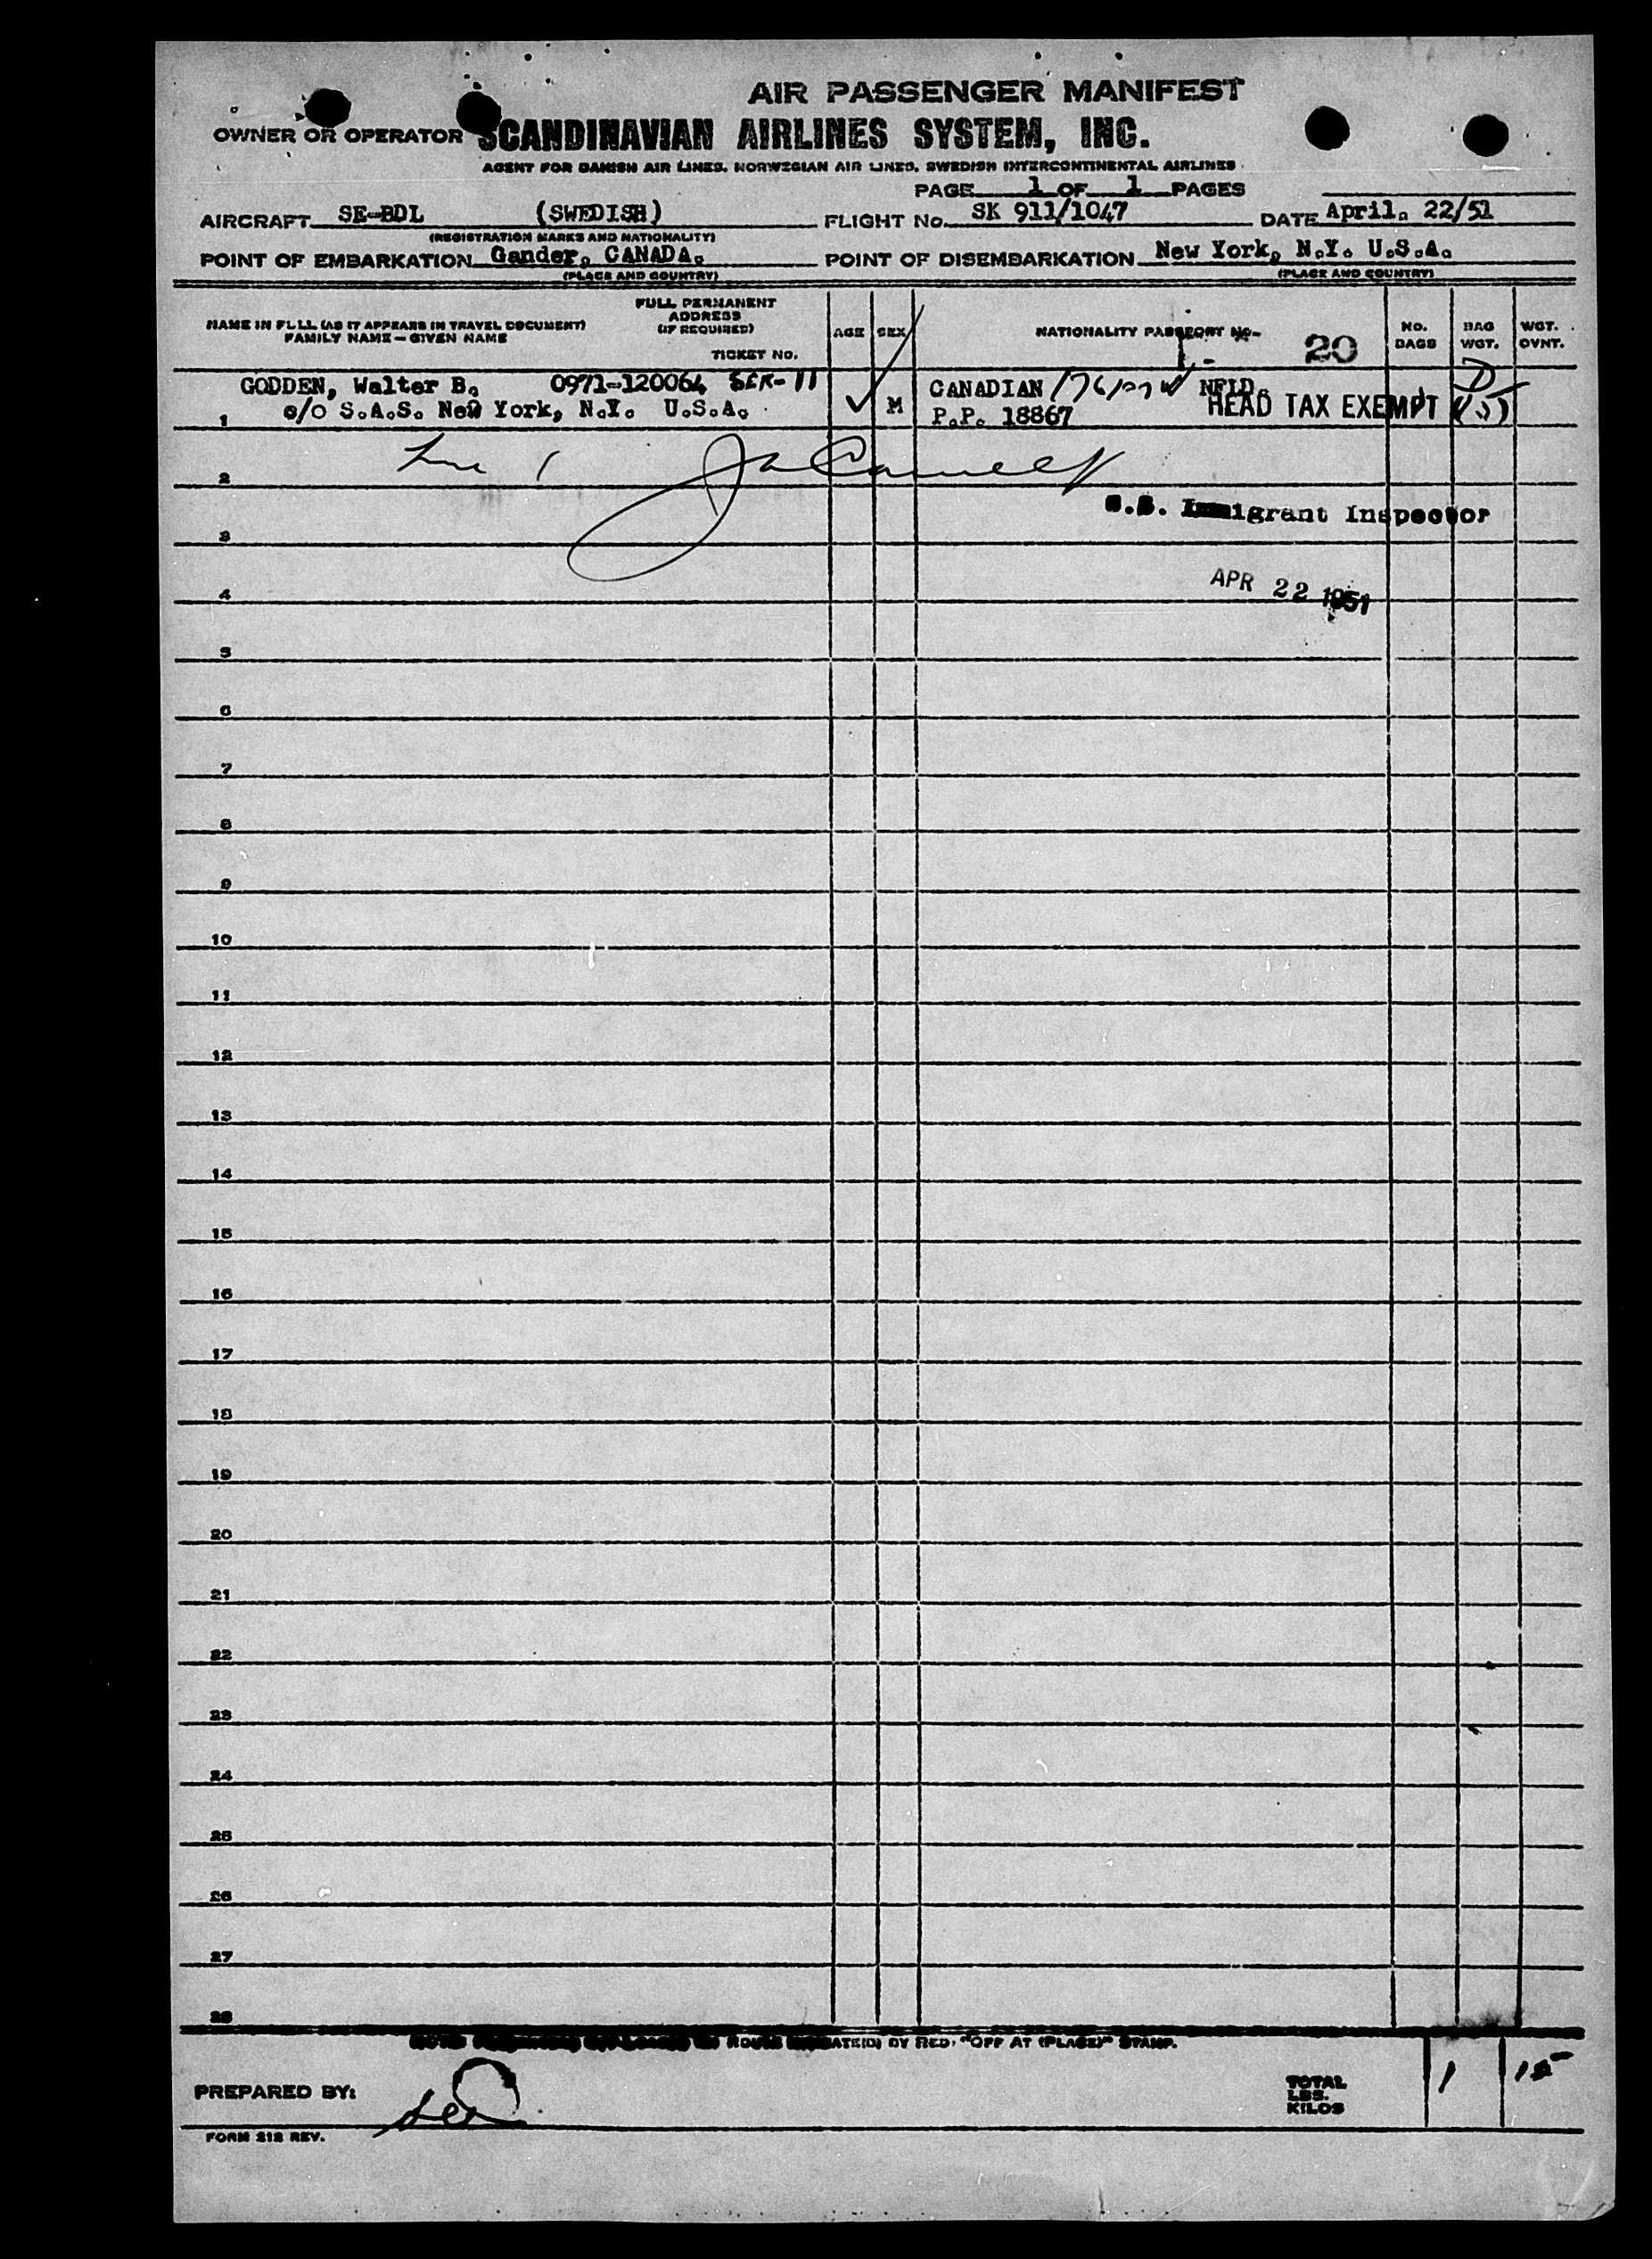 AIR PASSENGER MANIFEST
OWNER OR OPERATOR SCANDINAVIAN AIRLINES SYSTEM, INC.
AGENT FOR DANISH AIR LINES, NORWEGIAN AIR LINES, SWEDISH INTERCONTINENTAL AIRLINES
PAGE 1 OF 1 PAGES
AIRCRAFT SE-BDL (SWEDISH) FLIGHT No. SK 911/1047 DATE April. 22/51
(REGISTRATION MARKS AND NATIONALITY)
POINT OF EMBARKATION Gander, CANADA. POINT OF DISEMBARKATION New York, N.Y. U.S.A.
(PLACE AND COUNTRY) (PLACE AND COUNTRY)
NAME IN FULL (AS IT APPEARS IN TRAVEL DOCUMENT)
FAMILY NAME - GIVEN NAME
FULL PERMANENT
ADDRESS
(IF REQUIRED)
TICKET NO.
AGE SEX NATIONALITY PASSPORT No. 20
NO.
BAGS
BAG
WGT.
WGT.
OVNT.
GODDEN, Walter B. 0971-120064 SER-11 CANADIAN NFLD.
1 c/o S.A.S. New York, N.Y. U.S.A. M P.P. 18867 HEAD TAX EXEMPT
2
U.S. Immigrant Inspector
3
APR 22 1951
4
5
6
7
8
9
10
11
12
13
14
15
16
17
18
19
20
21
22
23
24
25
26
27
28
BY RED "OFF AT (PLACE)" STAMP.
PREPARED BY:
TOTAL
LBS.
KILOS
1 15
FORM 212 REV.